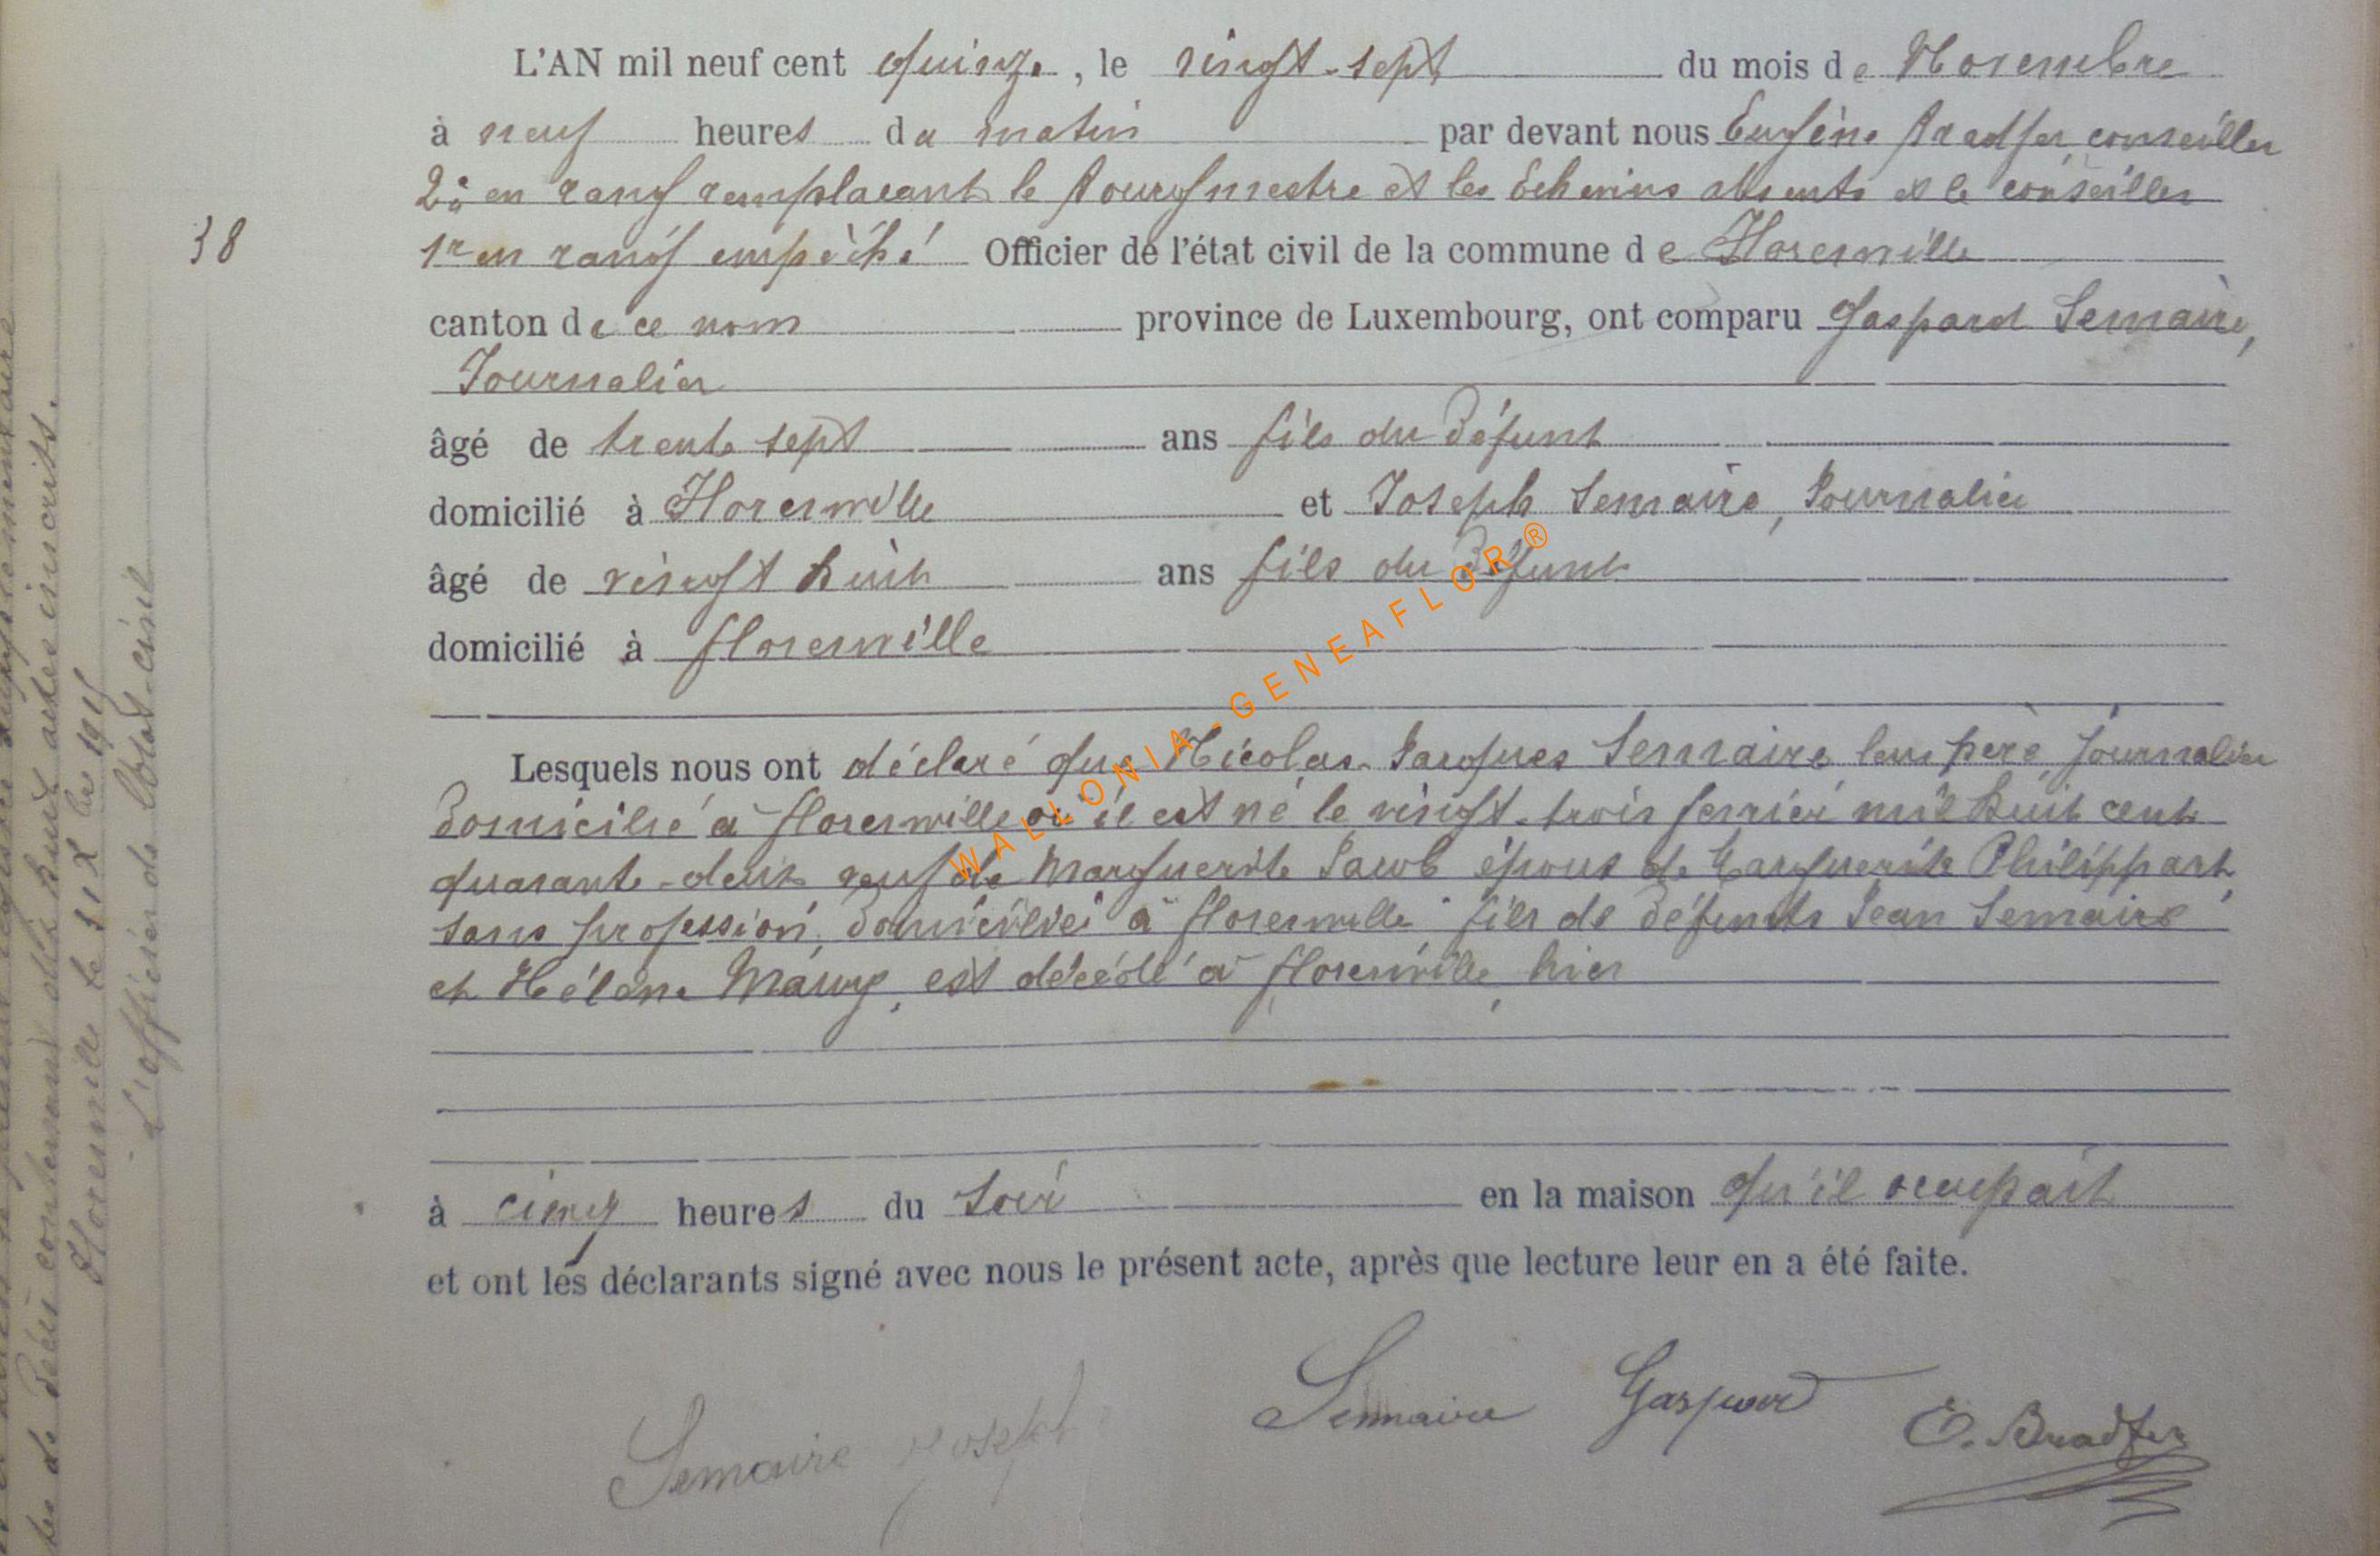 L'AN mil neuf cent quinze, le vingt-sept du mois de Novembre
à neuf heures du matin par devant nous Eugène Bradfer, conseiller
2e en rang remplaçant le bourgmestre et les échevins absents et le conseiller
38
1r en rang empêché Officier de l'état civil de la commune de Florenville
canton de ce nom province de Luxembourg, ont comparu Gaspard Semaire,
Journalier
âgé de trente sept ans fils du défunt
domicilié à Florenville et Joseph Semaire, Journalier
âgé de vingt huit ans fils du défunt
domicilié à florenville
Lesquels nous ont déclaré que Nicolas-Jacques Semaire, leur père, journalier
domicilié à florenville où il est né le vingt-trois février mil huit cent
quarante-deux veuf de Marguerite Jacob époux de Marguerite Philippart,
sans profession, domiciliée à florenville fils de défunts Jean Semaire
et Hélène Mauy, est décédé à florenville, hier
à cinq heures du soir en la maison qu'il occupait
et ont les déclarants signé avec nous le présent acte, après que lecture leur en a été faite.
Semaire Joseph Semaire Gaspard E. Bradfer
actes inscrits.
Florenville le 31 Xbre 1915
L'officier de l'état-civil
WALLONIA-GENEAFLOR®